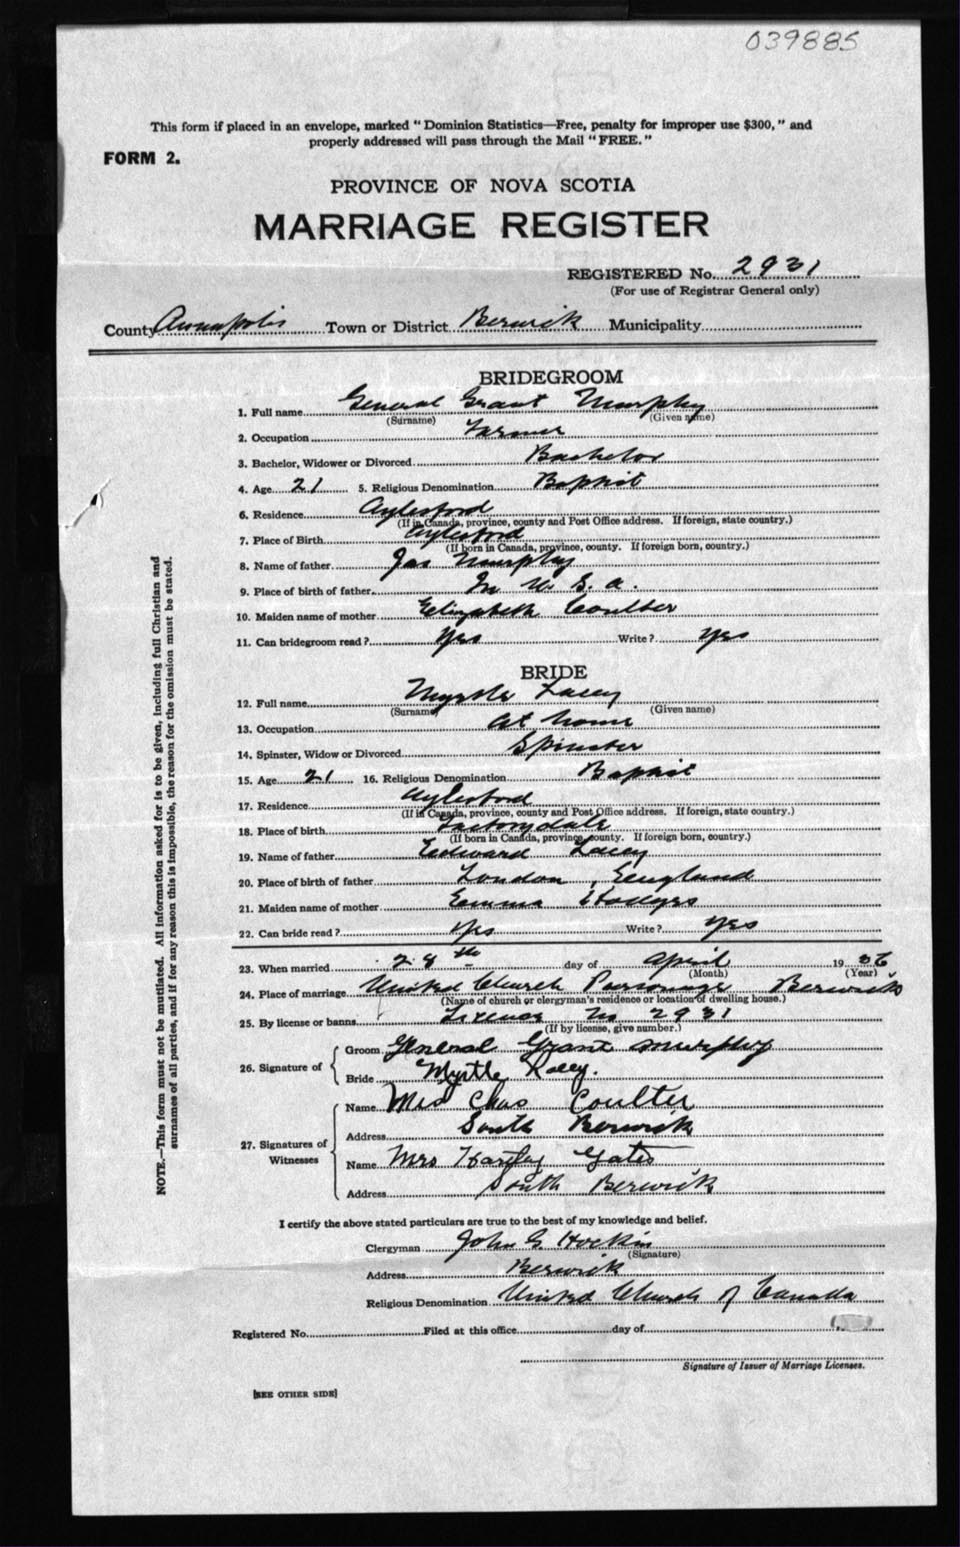 039885
This form if placed in an envelope, marked "Dominion Statistics—Free, penalty for improper use $300," and
properly addressed will pass through the Mail "FREE."
FORM 2.
PROVINCE OF NOVA SCOTIA
MARRIAGE REGISTER
REGISTERED No. 2931
(For use of Registrar General only)
County Annapolis Town or District Berwick Municipality
BRIDEGROOM
1. Full name General Grant Murphy
(Surname) (Given name)
2. Occupation Farmer
3. Bachelor, Widower or Divorced Bachelor
4. Age 21 5. Religious Denomination Baptist
6. Residence Aylesford
(If in Canada, province, county and Post Office address. If foreign, state country.)
7. Place of Birth Aylesford
(If born in Canada, province, county. If foreign born, country.)
8. Name of father Jas Murphy
9. Place of birth of father In U. S. A.
10. Maiden name of mother Elizabeth Coulter
11. Can bridegroom read? Yes Write? Yes
BRIDE
12. Full name Myrtle Lacey
(Surname) (Given name)
13. Occupation At home
14. Spinster, Widow or Divorced Spinster
15. Age 21 16. Religious Denomination Baptist
17. Residence Aylesford
(If in Canada, province, county and Post Office address. If foreign, state country.)
18. Place of birth Factorydale
(If born in Canada, province, county. If foreign born, country.)
19. Name of father Edward Lacey
20. Place of birth of father London, England
21. Maiden name of mother Emma Hodges
22. Can bride read? Yes Write? Yes
23. When married 28th day of April 1936
(Month) (Year)
24. Place of marriage United Church Parsonage Berwick
(Name of church or clergyman's residence or location of dwelling house.)
25. By license or banns License No 2931
(If by license, give number.)
26. Signature of
Groom General Grant Murphy
Bride Myrtle Lacey.
27. Signatures of Witnesses
Name Mrs Chas Coulter
Address South Berwick
Name Mrs Hartley Gates
Address South Berwick
I certify the above stated particulars are true to the best of my knowledge and belief.
Clergyman John G. Hockin
(Signature)
Address Berwick
Religious Denomination United Church of Canada
Registered No. Filed at this office day of
Signature of Issuer of Marriage Licenses.
[SEE OTHER SIDE]
NOTE.—This form must not be mutilated. All information asked for is to be given, including full Christian and
surnames of all parties, and if for any reason this is impossible, the reason for the omission must be stated.